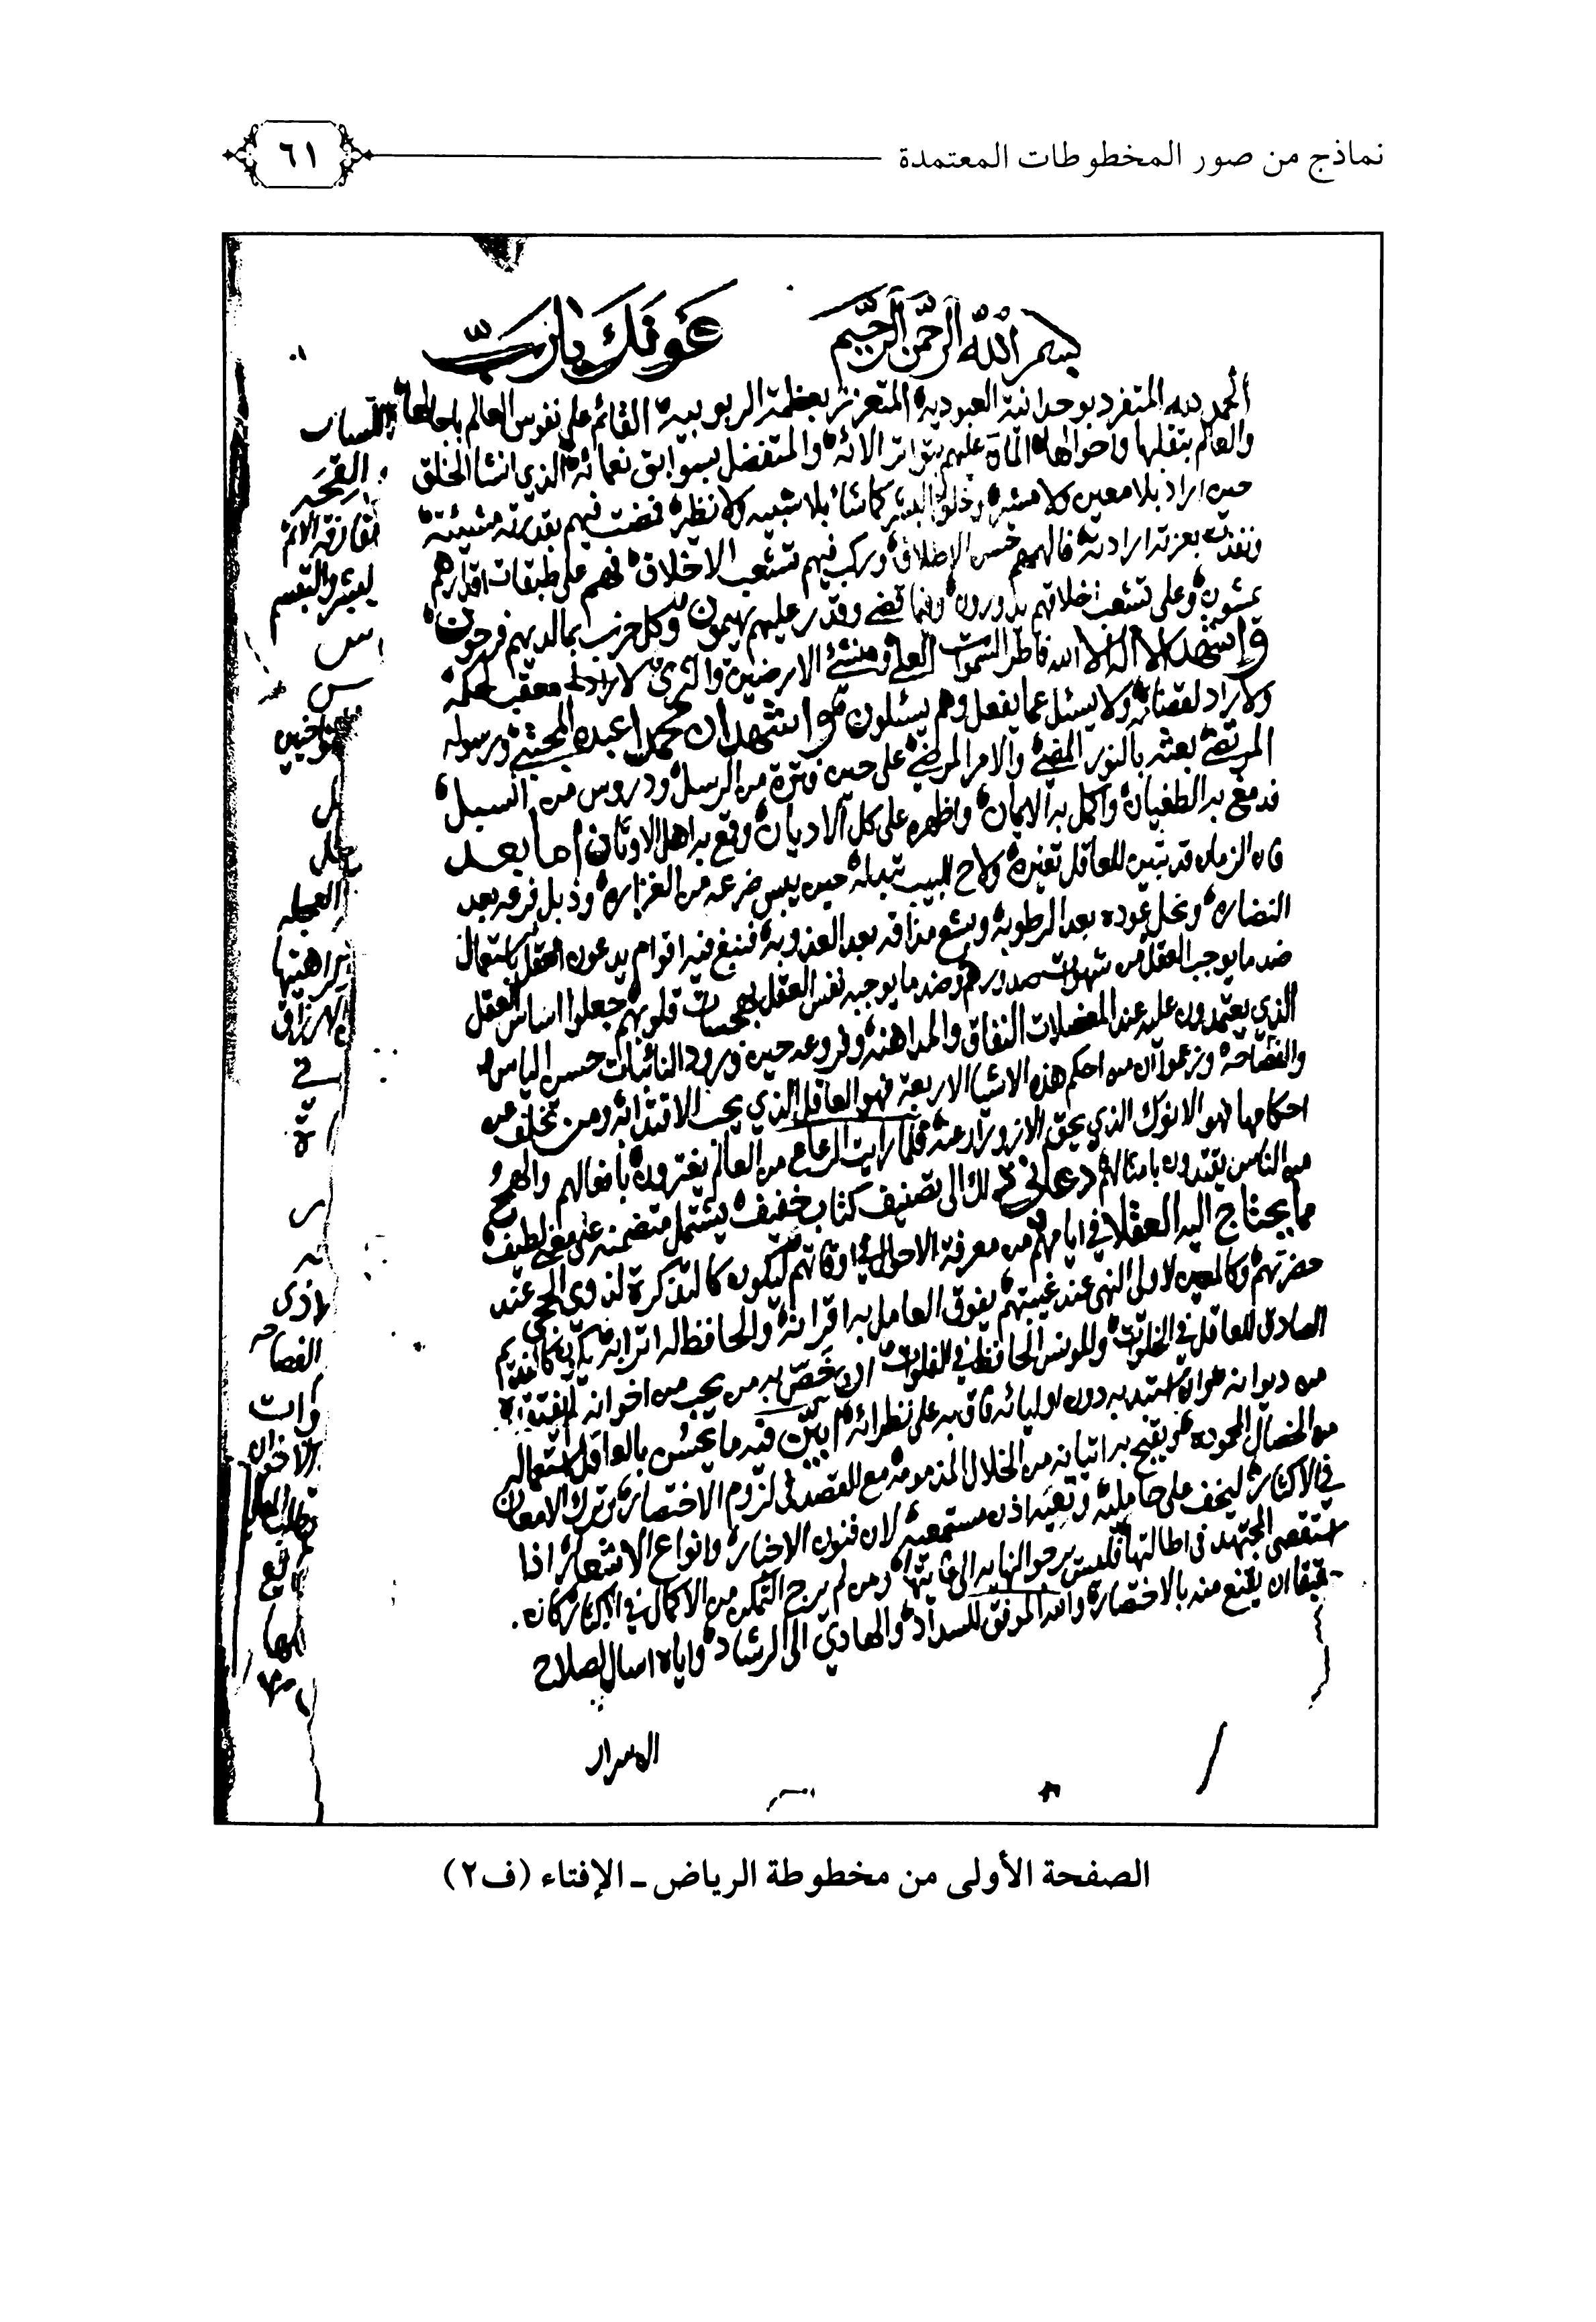 نماذج من صور المخطوطات المعتمدة
٦١
بسم الله الرحمن الرحيم عونك يارب
الحمد لله المتفرد بوحدانية العبودية المتعزز بعظمة الربوبية القائم على نفوس العالم باجالها
والعالم بتقلبها واحوالها المان عليهم بتواتر الائه والمتفضل بسوابق نعمائه الذي انشا الخلق
حين اراد بلا معين ولا مشير وخلق البشر كما شاء بلا شبيه ولا نظير فمضت فيهم بقدرته مشيئته
ونفذت بعزته ارادته فالهمهم حسن الاطلاق وركب فيهم تشعب الاخلاق فهم على طبقات اقدارهم
يمشون وعلى تشعب اخلاقهم يدورون وفيما قضى وقدر عليهم يهيمون وكل حزب بما لديهم فرحون
واشهد ان لا اله الا الله فاطر السموات العلى ومنشئ الارضين والثرى لا معقب لحكمه
ولا راد لقضائه ولا يسئل عما يفعل وهم يسئلون واشهد ان محمدا عبده المجتبى ورسوله
المرتضى بعثه بالنور المضيء والامر المرضي على حين فترة من الرسل ودروس من السبل
فدمغ به الطغيان واكمل به الايمان واظهره على كل الاديان وقمع به اهل الاوثان اما بعد
فان الزمان قد تبين للعاقل تغيره ولاح للبيب تبدله حين يبس ضرعه من الغزارة وذبل فرعه بعد
النضارة ونحل عوده بعد الرطوبة وبشع مذاقه بعد العذوبة فنبغ فيه اقوام يدعون العقل باستعمال
ضد ما يوجب العقل من شهوات صدورهم وضد ما يوجبه نفس العقل بهجسات قلوبهم جعلوا اساس العقل
الذي يعتمدون عليه عند المعضلات النفاق والمداهنة وفروعه حين ورود النائبات حسن الباس
والفصاحة وزعموا ان من احكم هذه الاشيا الاربعة فهو العاقل الذي يجب الاقتداء به ومن تخلف عن
احكامها فهو الانوك الذي يحق الازورار عنه فلما رايت الرعاع من العالم يغترون بافعالهم والهمج
من الناس يقتدون بامثالهم دعاني ذلك الى تصنيف كتاب خفيف يشتمل متضمنه على معنى لطيف
مما يحتاج اليه العقلا في ايامهم من معرفة الاحوال في اوقاتهم ليكون كالتذكرة لذوي الحجى عند
حضرتهم وكالمعين لاولي النهى عند غيبتهم يفوق العامل به اقرانه والحافظ له اترابه يكون كالنديم
الصادق للعاقل في الخلوات والمونس الحافظ في الفلوات ان خص به من يحب من اخوانه لم يفتقده
من ديوانه وان استبد به دون اوليائه فاق به على نظرائه ابين فيه ما يحسن بالعاقل استعماله
من الخصال المحمودة ويقبح به اتيانه من الخلال المذمومة مع القصد في لزوم الاختصار وترك الامعان
في الاكثار ليخف على حامله وتعيه اذن مستمعه لان فنون الاخبار وانواع الاشعار اذا
استقصى المجتهد في اطالتها فليس يرجو النهاية الى غايتها ومن لم يرج التمكن من الاكمال في الاكثار كان
حقيقا ان يقنع منه بالاختصار والله الموفق للسداد والهادي الى الرشاد واياه اسال اصلاح
الاسرار
الصفحة الأولى من مخطوطة الرياض ـ الإفتاء (ف٢)